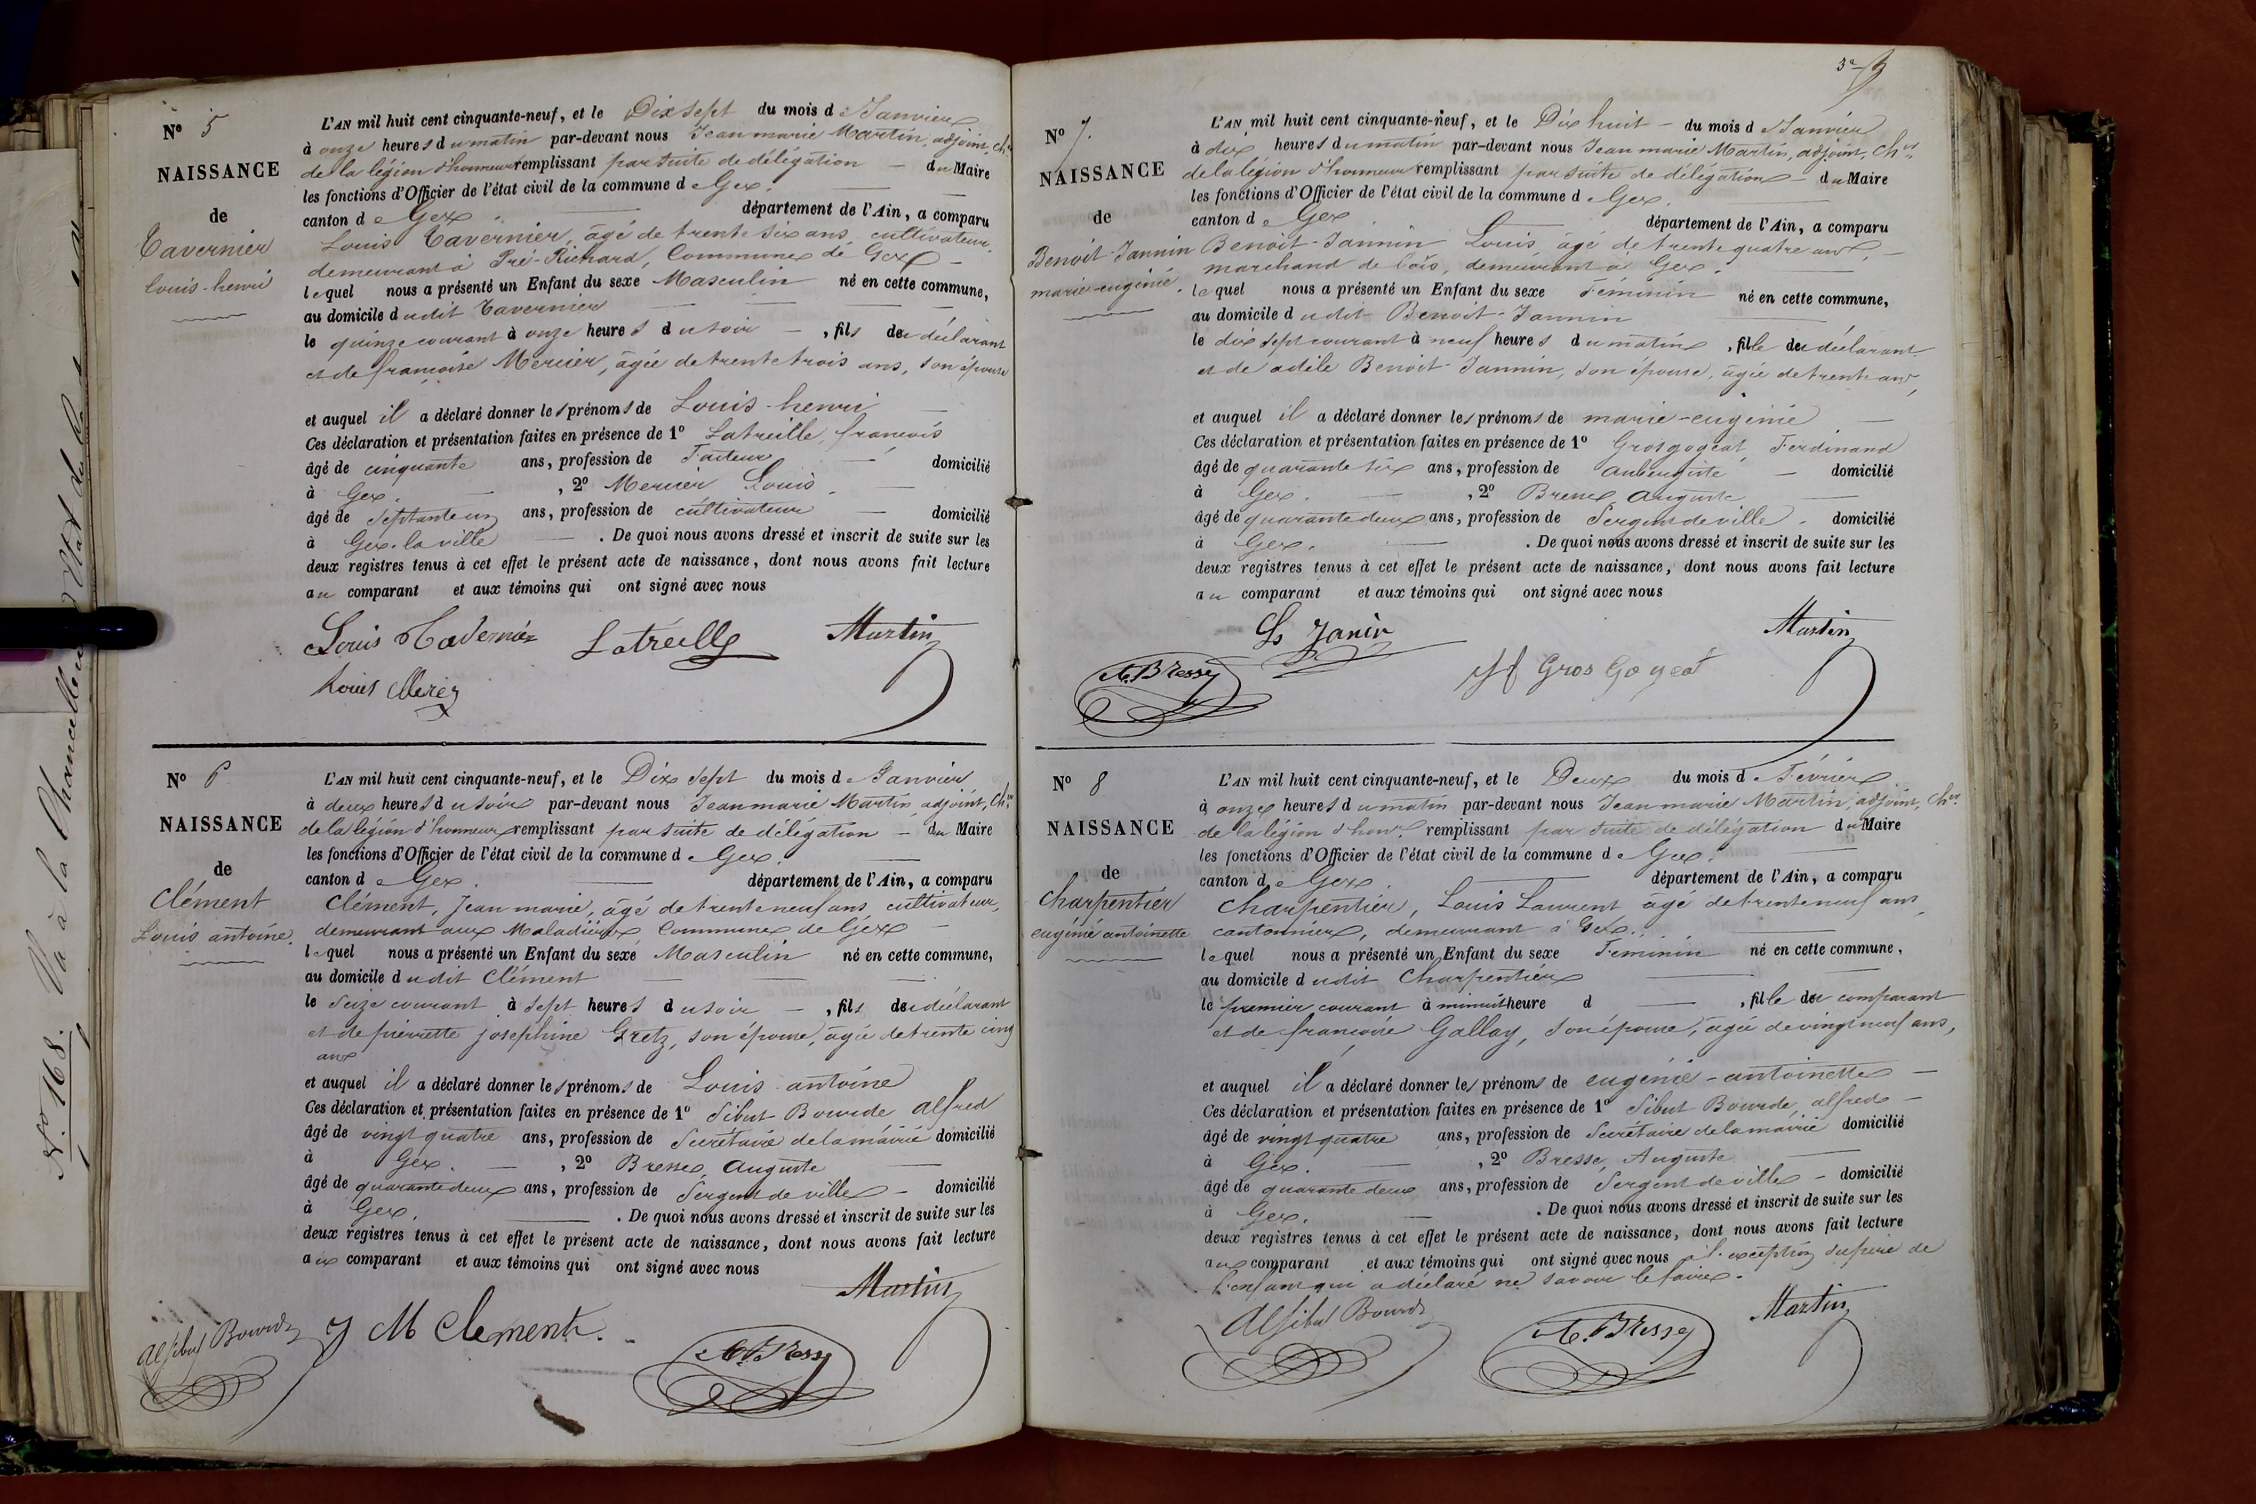 Nº 5
NAISSANCE
de
Tavernier
Louis-henri
L'AN mil huit cent cinquante-neuf, et le Dix sept du mois de Janvier
à onze heures du matin par-devant nous Jean marie Martin, adjoint, Chr.
de la légion d'honneur remplissant par suite de délégation — du Maire
les fonctions d'Officier de l'état civil de la commune de Gex.
canton de Gex département de l'Ain, a comparu
Louis Tavernier, âgé de trente six ans cultivateur,
demeurant à Pré-Richard, Commune de Gex —
lequel nous a présenté un Enfant du sexe Masculin né en cette commune,
au domicile dudit Tavernier
le quinze courant à onze heures du soir — , fils du déclarant
et de françoise Mercier, âgée de trente trois ans, son épouse
et auquel il a déclaré donner les prénoms de Louis-henri
Ces déclaration et présentation faites en présence de 1º Latreille, françois
âgé de cinquante ans, profession de Facteur domicilié
à Gex. — , 2º Mercier Louis. —
âgé de septante un ans, profession de cultivateur — domicilié
à Gex-la-ville — . De quoi nous avons dressé et inscrit de suite sur les
deux registres tenus à cet effet le présent acte de naissance, dont nous avons fait lecture
au comparant et aux témoins qui ont signé avec nous
Louis Tavernier Latreille Martin
Louis
Nº 6
NAISSANCE
de
Clément
Louis antoine.
L'AN mil huit cent cinquante-neuf, et le Dix sept du mois de Janvier
à deux heures du soir par-devant nous Jean marie Martin adjoint, Chr.
de la légion d'honneur remplissant par suite de délégation — du Maire
les fonctions d'Officier de l'état civil de la commune de Gex.
canton de Gex. département de l'Ain, a comparu
Clément, Jean marie, âgé de trente neuf ans cultivateur,
demeurant aux Maladières Commune de Gex —
lequel nous a présenté un Enfant du sexe Masculin né en cette commune,
au domicile dudit Clément
le seize courant à sept heures du soir — , fils du déclarant
et de pierrette josephine Gretz, son épouse, âgée de trente cinq
ans
et auquel il a déclaré donner les prénoms de Louis antoine
Ces déclaration et présentation faites en présence de 1º Sibut Bourde alfred
âgé de vingt quatre ans, profession de Secrétaire de la mairie domicilié
à Gex. — , 2º Bresse, Auguste
âgé de quarante deux ans, profession de Sergent de ville — domicilié
à Gex. . De quoi nous avons dressé et inscrit de suite sur les
deux registres tenus à cet effet le présent acte de naissance, dont nous avons fait lecture
aux comparant et aux témoins qui ont signé avec nous
Martin
Al Sibut Bourde J M Clement. A. Bresse
Nº 168. Va à la Chancellerie
3
Nº 7.
NAISSANCE
de
Benoit-Jannin
marie-eugénie.
L'AN mil huit cent cinquante-neuf, et le Dix huit — du mois de Janvier
à dix heures du matin par-devant nous Jean marie Martin, adjoint, Chr.
de la légion d'honneur remplissant par suite de délégation — du Maire
les fonctions d'Officier de l'état civil de la commune de Gex.
canton de Gex département de l'Ain, a comparu
Benoit-Jannin Louis âgé de trente quatre ans, —
marchand de bois, demeurant à Gex.
lequel nous a présenté un Enfant du sexe Féminin né en cette commune,
au domicile dudit Benoit-Jannin
le dix sept courant à neuf heures du matin , fille du déclarant
et de adèle Benoit-Jannin, son épouse, âgée de trente ans,
et auquel il a déclaré donner les prénoms de marie-eugénie —
Ces déclaration et présentation faites en présence de 1º Grosgogeat, Ferdinand
âgé de quarante six ans, profession de aubergiste — domicilié
à Gex. — , 2º Bresse, Auguste
âgé de quarante deux ans, profession de Sergent de ville. domicilié
à Gex. — . De quoi nous avons dressé et inscrit de suite sur les
deux registres tenus à cet effet le présent acte de naissance, dont nous avons fait lecture
au comparant et aux témoins qui ont signé avec nous
Ls Janin Martin
A. Bresse Gros Gogeat
Nº 8
NAISSANCE
de
Charpentier
eugénie antoinette
L'AN mil huit cent cinquante-neuf, et le Deux du mois de Février
à onze heures du matin par-devant nous Jean marie Martin, adjoint, Chr.
de la légion d'honr. remplissant par suite de délégation du Maire
les fonctions d'Officier de l'état civil de la commune de Gex.
canton de Gex. département de l'Ain, a comparu
Charpentier, Louis Laurent âgé de trente neuf ans,
cantonnier, demeurant à Gex.
lequel nous a présenté un Enfant du sexe Féminin né en cette commune,
au domicile dudit Charpentier
le premier courant à minuit heure d — , fille du comparant
et de françoise Gallay, son épouse, âgée de vingt neuf ans,
et auquel il a déclaré donner les prénoms de eugénie-antoinette —
Ces déclaration et présentation faites en présence de 1º Sibut Bourde, alfred —
âgé de vingt quatre ans, profession de Secrétaire de la mairie domicilié
à Gex. — , 2º Bresse, Auguste
âgé de quarante deux ans, profession de Sergent de ville — domicilié
à Gex. — . De quoi nous avons dressé et inscrit de suite sur les
deux registres tenus à cet effet le présent acte de naissance, dont nous avons fait lecture
aux comparant et aux témoins qui ont signé avec nous à l'exception du père de
l'enfant qui a déclaré ne savoir le faire.
Al Sibut Bourde A. Bresse Martin